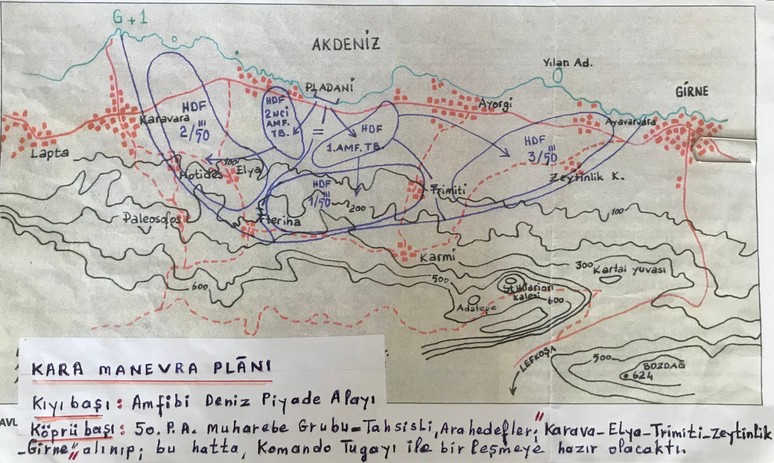 G+1
AKDENİZ
Yılan Ad.
GİRNE
PLADANİ
HDF
2NCİ
AMF.
TB.
Ayorgi
HDF
2/50
III
Karavara
=
HDF
1.AMF.TB.
Ayavarvara
HDF
3/50
III
Lapta
Motides
100
Elya
Zeytinlik K.
HDF
1/50
III
Trimiti
200
100
Paleosofos
Fterina
Karmi
300
Kartal yuvası
500
600
St Hilarion
kalesi
600
Adatepe
LEFKOŞA
500
BOZDAĞ
624
KARA MANEVRA PLÂNI
Kıyıbaşı: Amfibi Deniz Piyade Alayı
AVL
Köprü başı: 50. P.A. Muharebe Grubu-Tahsisli, Ara hedefler; "Karava-Elya-Trimiti-Zeytinlik
-Girne" alınıp; bu hatta, Komando Tugayı ile birleşmeye hazır olacaktı.